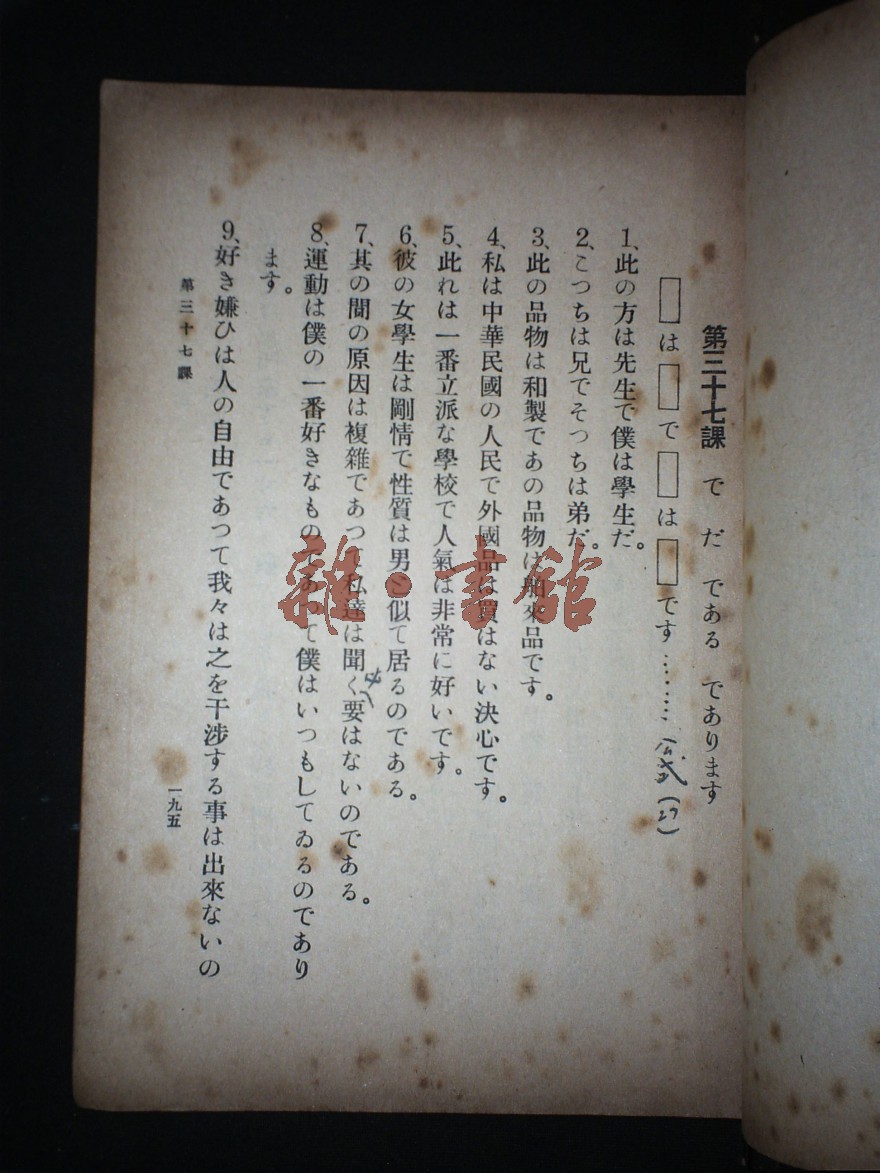 第三十七課 で だ である であります
□は□で□は□です………公式(27)
1、此の方は先生で僕は學生だ。
2、こつちは兄でそつちは弟だ。
3、此の品物は和製であの品物は舶來品です。
4、私は中華民國の人民で外國品は買はない決心です。
5、此れは一番立派な學校で人氣は非常に好いです。
6、彼の女學生は剛情で性質は男に似て居るのである。
7、其の間の原因は複雜であつて私達は聞く要はないのである。
8、運動は僕の一番好きなものであつて僕はいつもしてゐるのであり
ます。
9、好き嫌ひは人の自由であつて我々は之を干渉する事は出來ないの
第三十七課
一九五
雜·書館